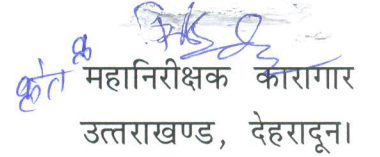 महानिरीक्षक कारागार
उत्तराखण्ड, देहरादून।